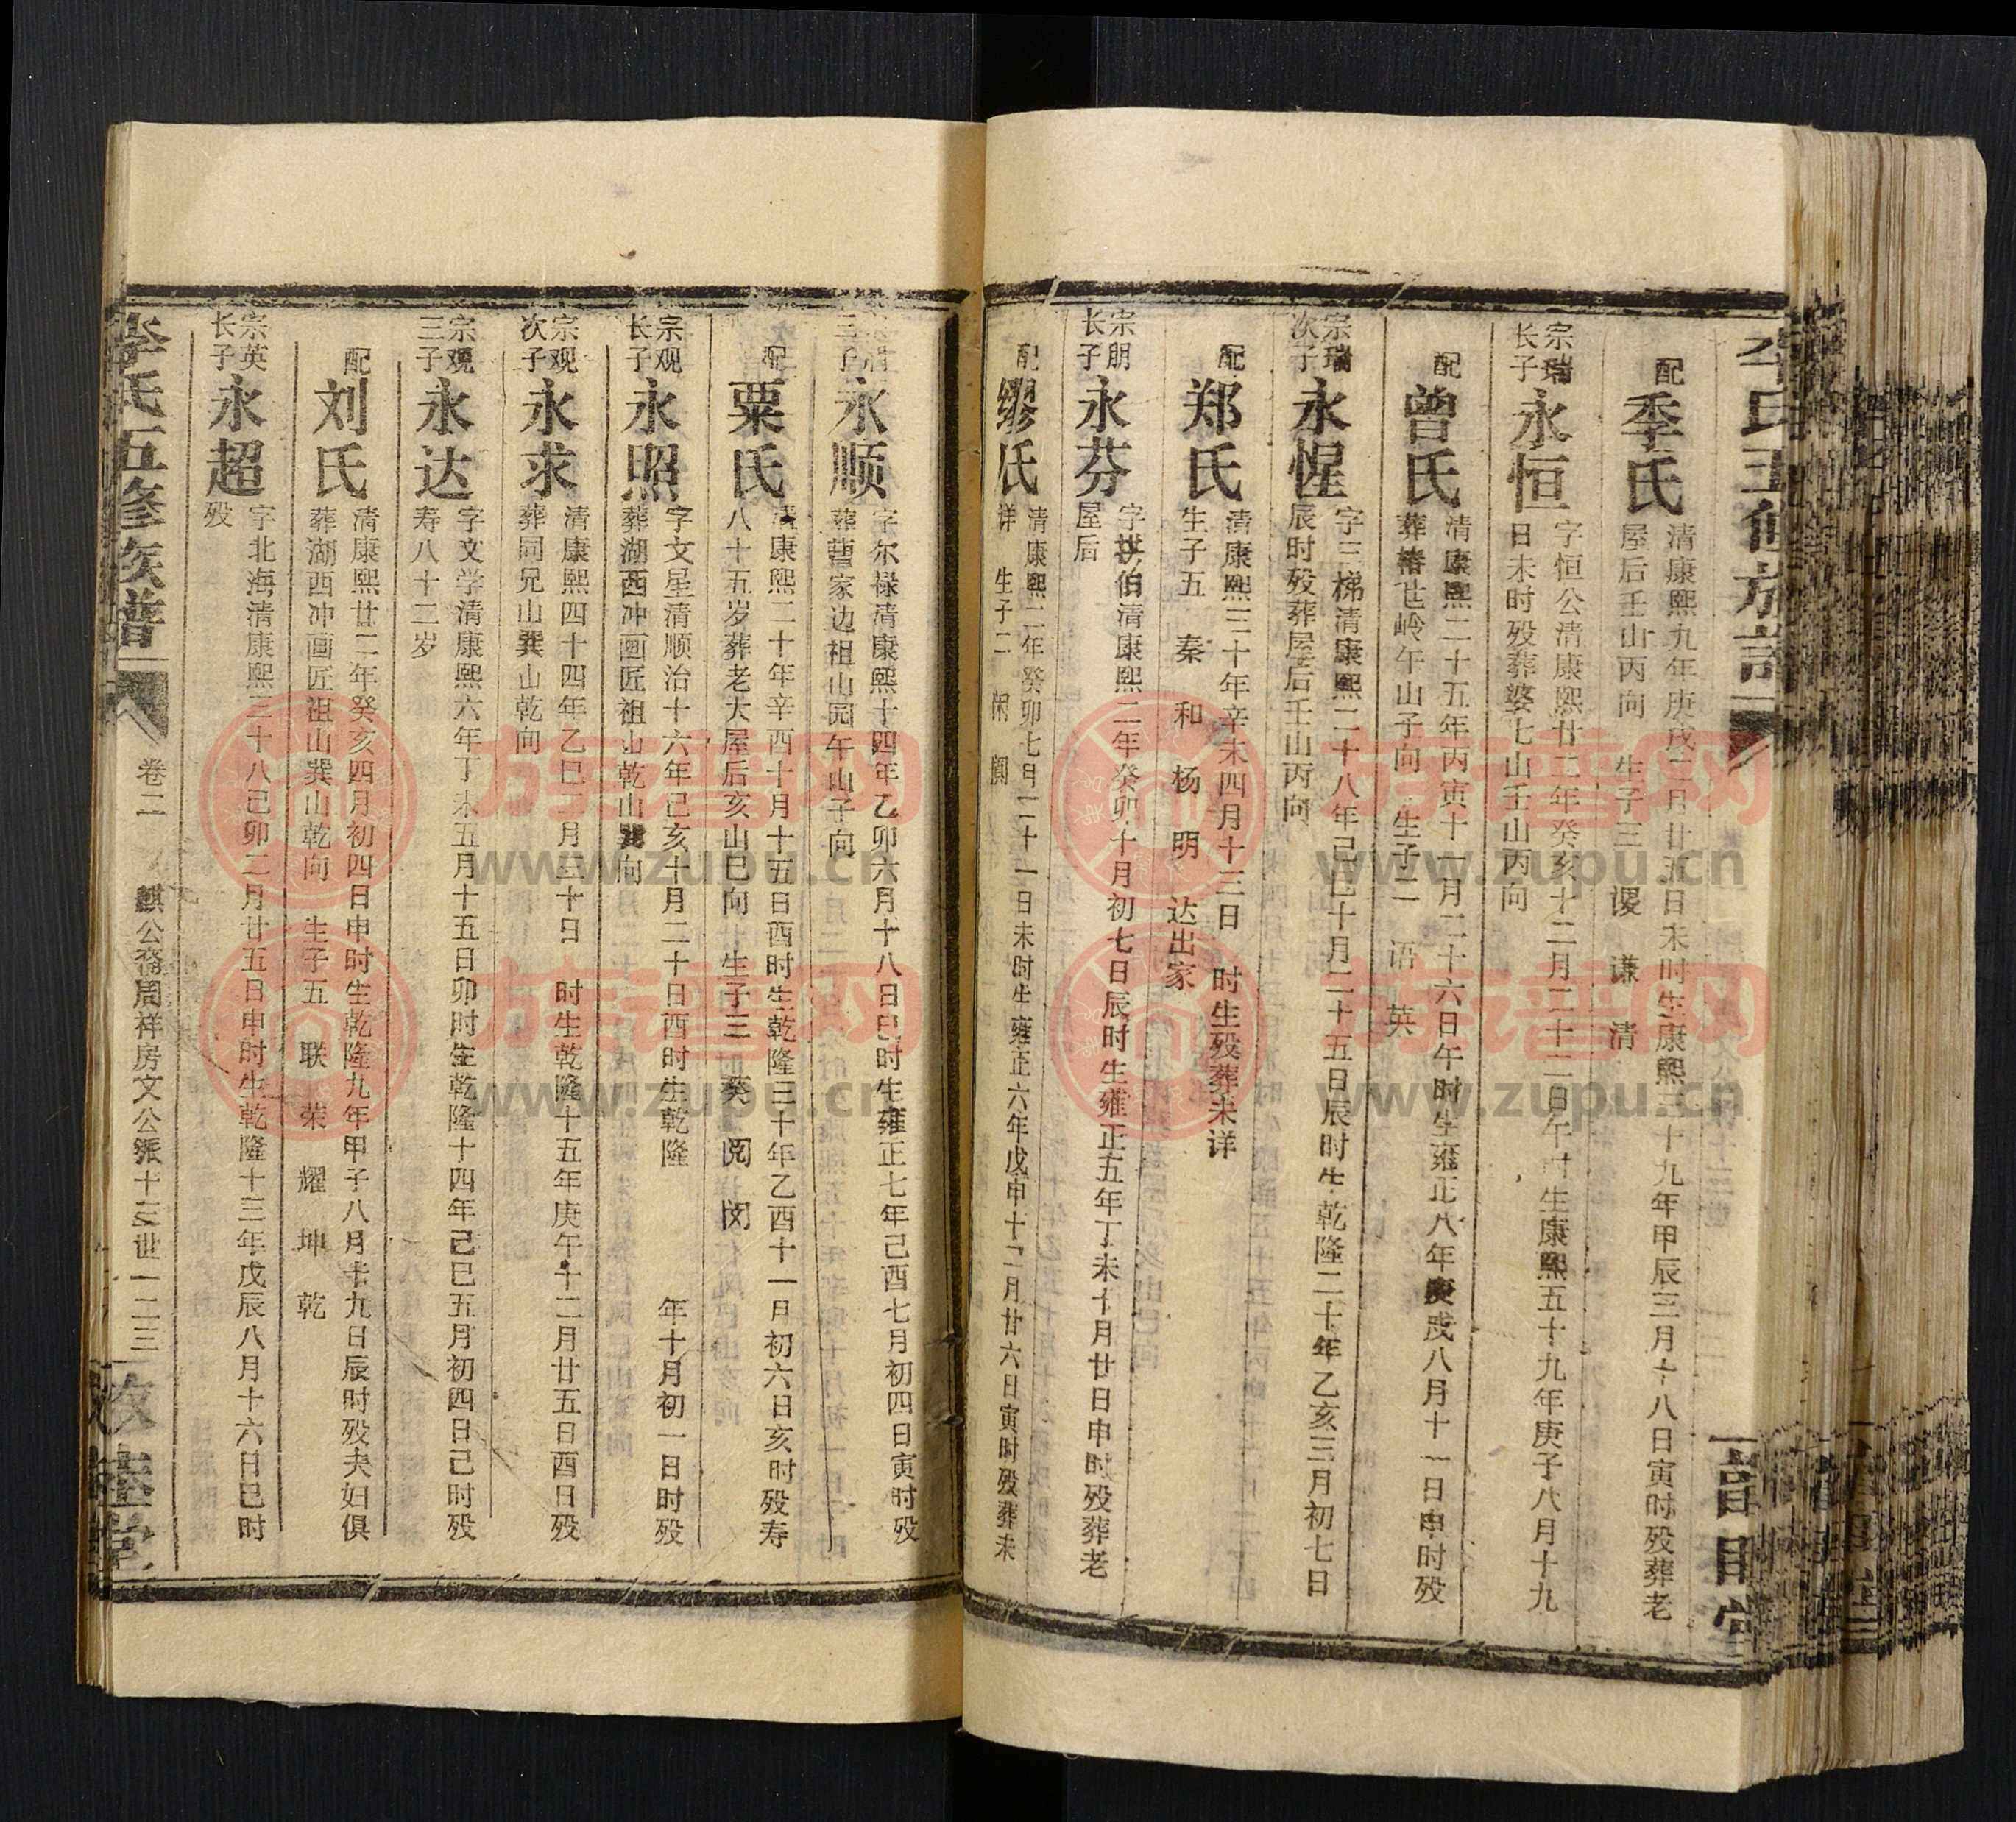 配
季氏
清康熙九年庚戌二月廿五日未时生康熙三十九年甲辰三月十八日寅时殁葬老
屋后壬山丙向 生子三 谡 谦 清
宗瑞
长子
永恒
字恒公清康熙廿二年癸亥十二月二十二日午时生康熙五十九年庚子八月十九
日未时殁葬婆七山壬山丙向
配
曾氏
清康熙二十五年丙寅十一月二十六日午时生雍正八年庚戌八月十一日申时殁
葬椿世岭午山子向 生子二 语 英
宗瑞
次子
永惺
字三梯清康熙二十八年己巳十月二十五日辰时生乾隆二十年乙亥三月初七日
辰时殁葬屋后壬山丙向
配
郑氏
清康熙三十年辛未四月十三日 时生殁葬未详
生子五 秦 和 杨 明 达出家
宗朋
长子
永芬
字拱伯清康熙二年癸卯十月初七日辰时生雍正五年丁未十月廿日申时殁葬老
屋后
配
缪氏
清康熙二年癸卯七月二十一日未时生雍正六年戊申十二月廿六日寅时殁葬未
详 生子二
三子
永顺
字尔禄清康熙十四年乙卯六月十八日巳时生雍正七年己酉七月初四日寅时殁
葬曹家边祖山园午山子向
配
粟氏
清康熙二十年辛酉十月十五日酉时生乾隆三十年乙酉十一月初六日亥时殁寿
八十五岁葬老大屋后亥山巳向 生子三 葵 阅 闵
宗观
长子
永照
字文星清顺治十六年己亥十月二十日酉时生乾隆 年十月初一日时殁
葬湖西冲画匠祖山乾山巽向
宗观
次子
永求
清康熙四十四年乙巳二月三十日 时生乾隆十五年庚午十二月廿五日酉日殁
葬同兄山巽山乾向
宗观
三子
永达
字文学清康熙六年丁未五月十五日卯时生乾隆十四年己巳五月初四日己时殁
寿八十二岁
配
刘氏
清康熙廿二年癸亥四月初四日申时生乾隆九年甲子八月十九日辰时殁夫妇俱
葬湖西冲画匠祖山巽山乾向 生子五 联 荣 耀 坤 乾
宗英
长子
永超
字北海清康熙三十八己卯二月廿五日申时生乾隆十三年戊辰八月十六日巳时
殁
李氏五修族谱
卷二
麒公裔周祥房文公派十三世一二三
族谱网
www.zupu.cn
族谱网
www.zupu.cn
族谱网
www.zupu.cn
族谱网
www.zupu.cn